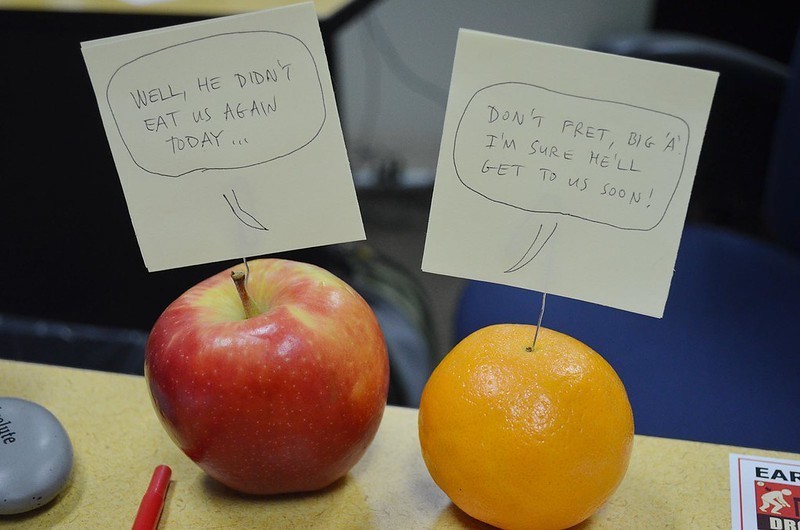 WELL, HE DIDN'T
EAT US AGAIN
TODAY...
DON'T FRET, BIG 'A'
I'M SURE HE'LL
GET TO US SOON!
EAR
DR